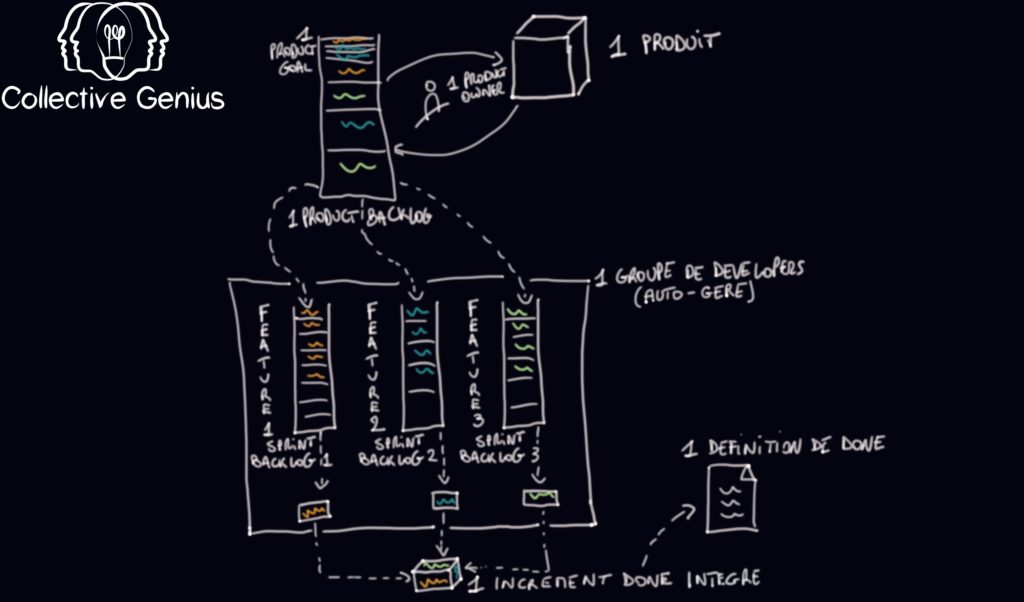 Collective Genius
1
PRODUCT
GOAL
1 PRODUCT
OWNER
1 PRODUIT
1 PRODUCT BACKLOG
1 GROUPE DE DEVELOPERS
(AUTO-GERE)
FEATURE 1
FEATURE 2
FEATURE 3
SPRINT
BACKLOG 1
SPRINT
BACKLOG 2
SPRINT
BACKLOG 3
1 DEFINITION DE DONE
1 INCREMENT DONE INTEGRE